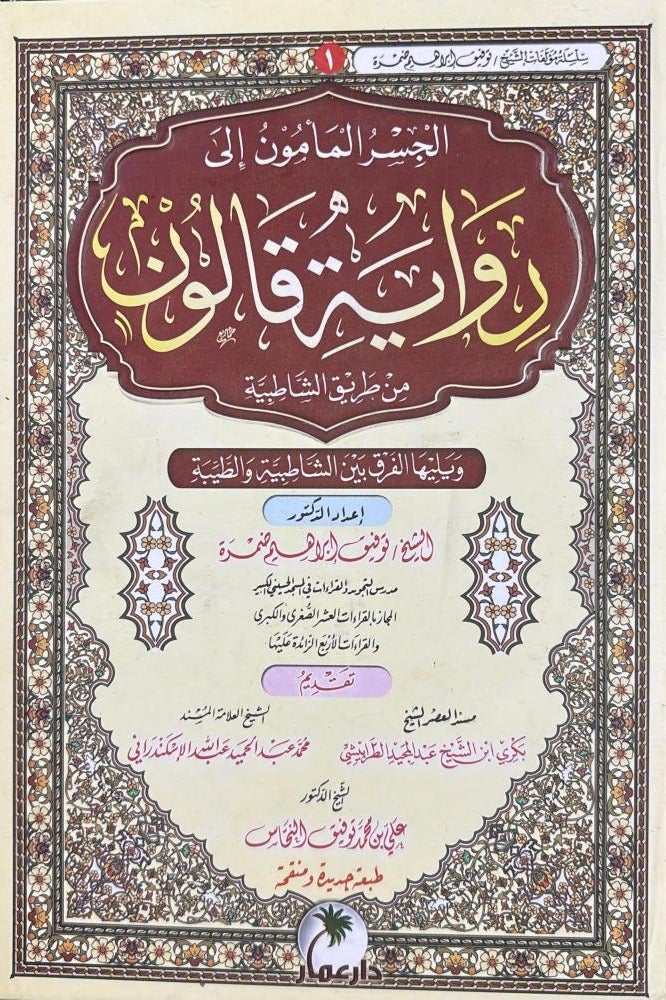 سلسلة مؤلفات الشيخ / توفيق إبراهيم ضمرة
١
الجِسْرُ المَأمُونُ إلى
رِوَايَةِ قَالُونَ
مِنْ طَرِيقِ الشَّاطِبِيَّةِ
وَيَلِيهَا الفَرْقُ بَيْنَ الشَّاطِبِيَّةِ وَالطَّيِّبَةِ
إعداد الدكتور
الشيخ / توفيق إبراهيم ضمرة
مدرس التجويد والقراءات في المسجد الحسيني الكبير
المجاز بالقراءات العشر الصُّغرى والكبرى
والقراءات الأربع الزَّائدة عَلَيْهَا
تَقْدِيمُ
مسند العصر الشيخ
بكري ابن الشَّيخ عَبد المجيد الطرابيشي
الشيخ العلامة المُسْنِد
محمد عبد الحميد عبد الله الإسكندراني
الشَّيخ الدكتور
علي بن محمد توفيق النحاس
طبعة جديدة ومنقحة
دار عمار